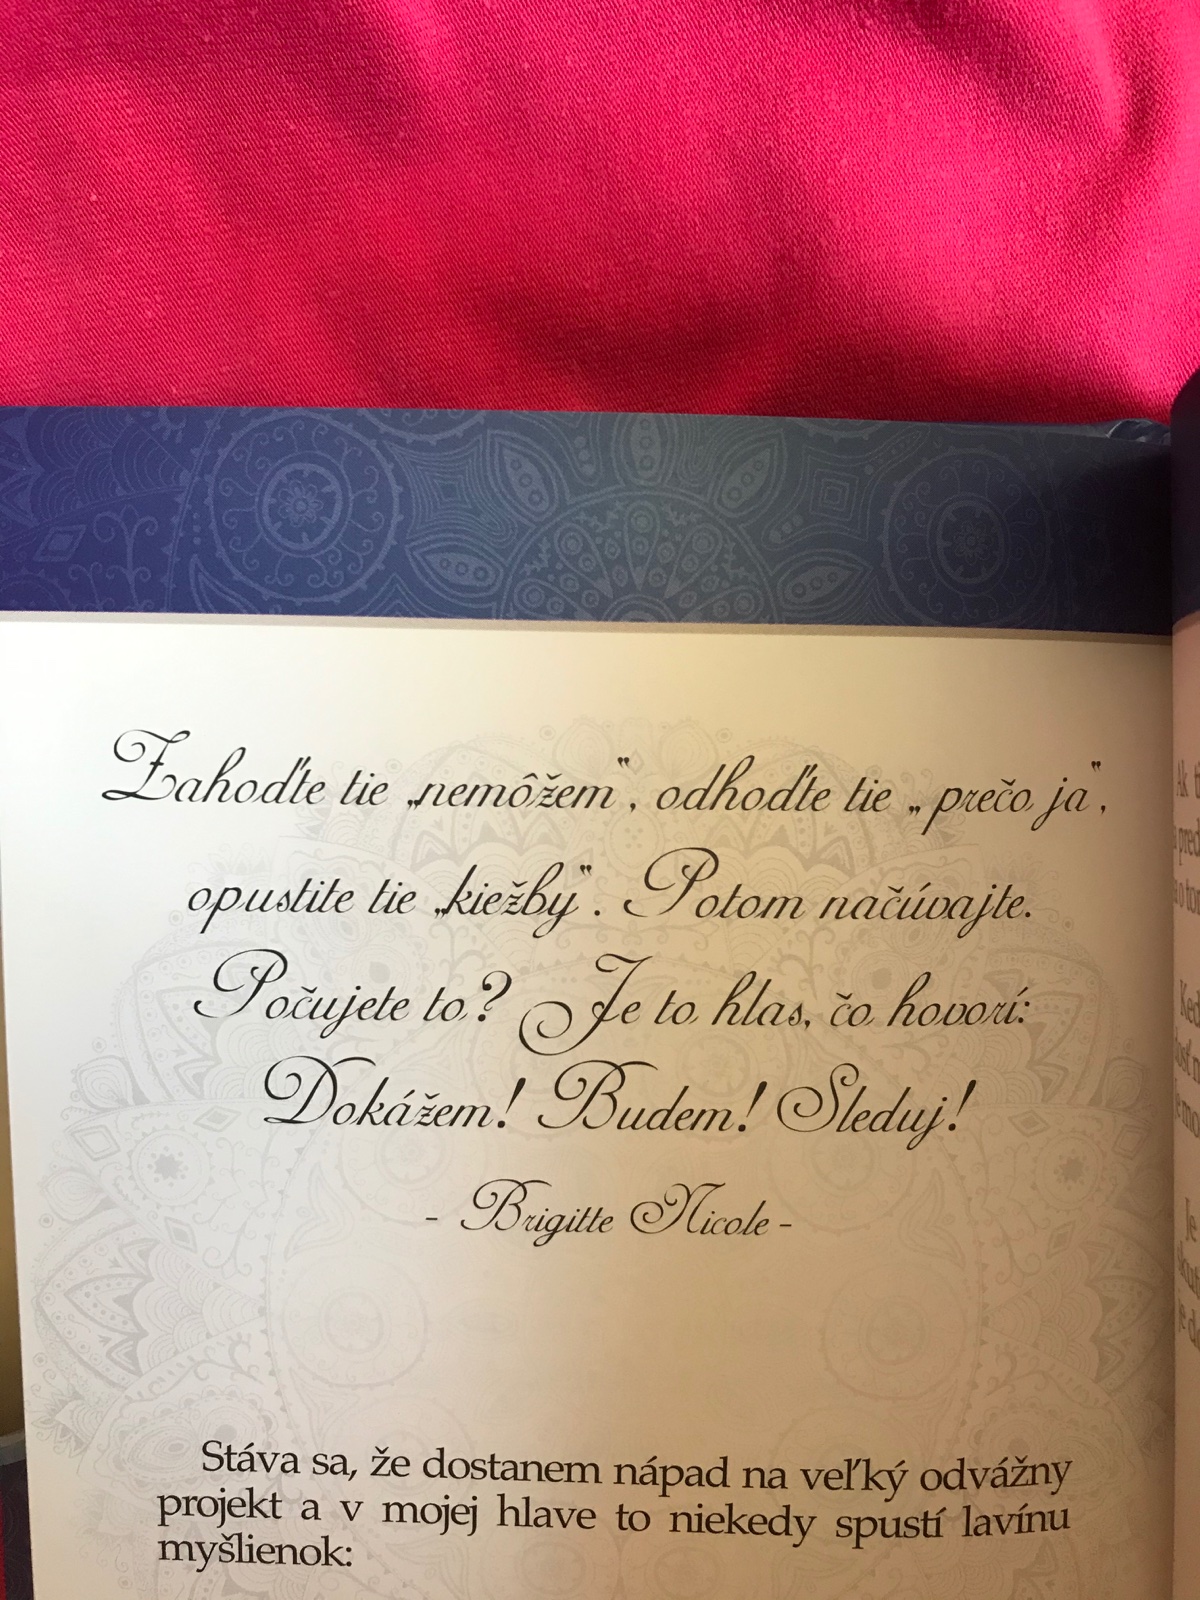 Zahoďte tie „nemôžem“, odhoďte tie „prečo ja“,
opustite tie „kiežby“. Potom načúvajte.
Počujete to? Je to hlas, čo hovorí:
Dokážem! Budem! Sleduj!
- Brigitte Nicole -
Stáva sa, že dostanem nápad na veľký odvážny
projekt a v mojej hlave to niekedy spustí lavínu
myšlienok:
Ak
Je